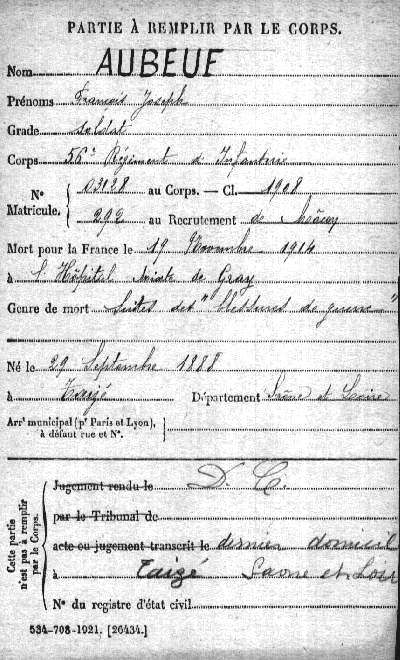 PARTIE À REMPLIR PAR LE CORPS.
Nom AUBEUF
Prénoms François Joseph
Grade soldat
Corps 56e Régiment d'Infanterie
N° Matricule. 03128 au Corps. — Cl. 1908
292 au Recrutement de Mâcon
Mort pour la France le 19 Novembre 1914
à l'Hôpital mixte de Gray
Genre de mort Suites des "blessures de guerre"
Né le 29 Septembre 1888
à Taizé Département Saône et Loire
Arrt municipal (pr Paris et Lyon),
à défaut rue et N°.
Cette partie n'est pas à remplir par le Corps.
Jugement rendu le D. C.
par le Tribunal de
acte ou jugement transcrit le dernier domicil
à Taizé Saone et Loir
N° du registre d'état civil
534-708-1921. [26434.]